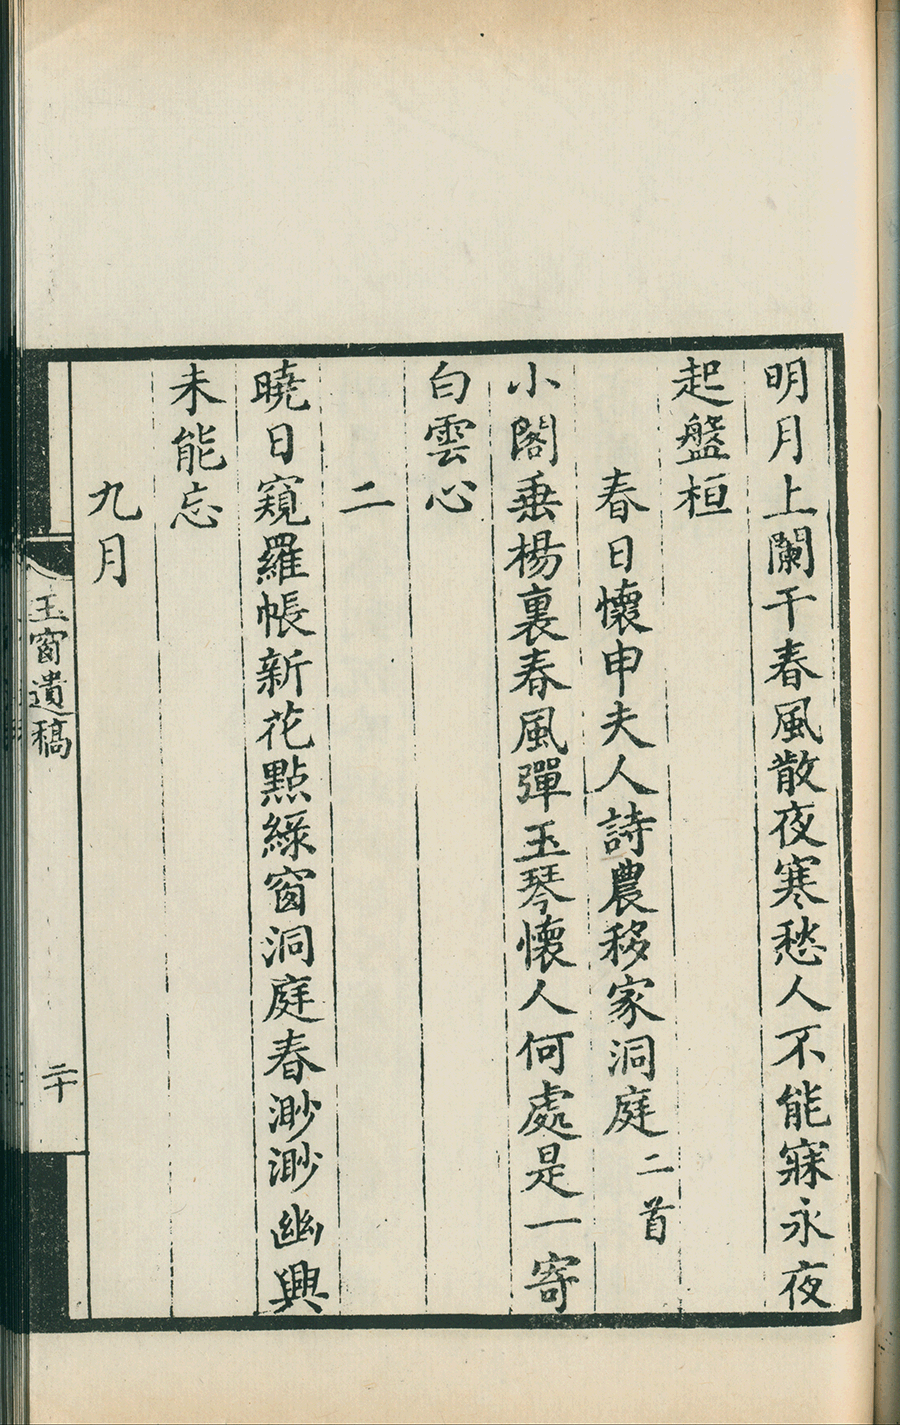 明月上闌干春風散夜寒愁人不能寐永夜
起盤桓
春日懷申夫人詩農移家洞庭二首
小閣垂楊裏春風彈玉琴懷人何處是一寄
白雲心
二
曉日窺羅帳新花點綠窗洞庭春渺渺幽興
未能忘
九月
玉窗遺稿
二十